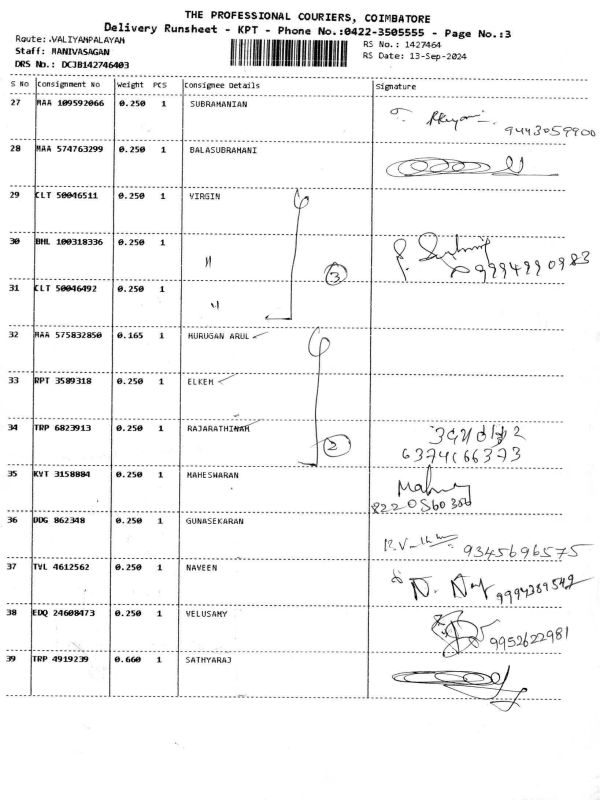 THE PROFESSIONAL COURIERS, COIMBATORE
Delivery Runsheet - KPT - Phone No.:0422-3505555 - Page No.:3
Route:.VALIYAMPALAYAM
RS No.: 1427464
Staff: MANIVASAGAN
RS Date: 13-Sep-2024
DRS No.: DCJB142746403
S No Consignment No Weight PCS Consignee Details Signature
27 MAA 109592066 0.250 1 SUBRAMANIAN
9443059900
28 MAA 574763299 0.250 1 BALASUBRAMANI
29 CLT 50046511 0.250 1 VIRGIN
30 BHL 100318336 0.250 1 "
9994990983
3
31 CLT 50046492 0.250 1 "
32 MAA 575832850 0.165 1 MURUGAN ARUL
33 RPT 3589318 0.250 1 ELKEM
34 TRP 6823913 0.250 1 RAJARATHINAM
2
6374166373
35 KVT 3158884 0.250 1 MAHESWARAN
8220560306
36 DDG 862348 0.250 1 GUNASEKARAN
9345696575
37 TVL 4612562 0.250 1 NAVEEN
9994389542
38 EDQ 24608473 0.250 1 VELUSAMY
9952622981
39 TRP 4919239 0.660 1 SATHYARAJ